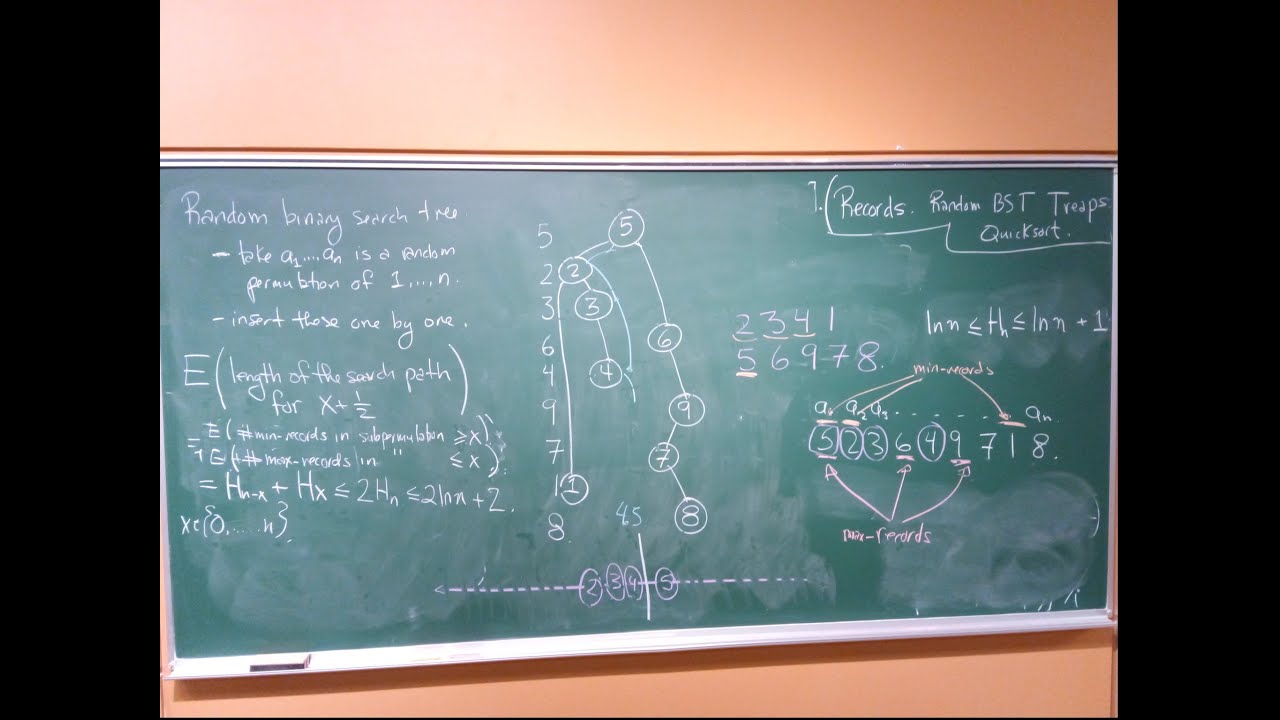 Random binary search tree.
- take a1, ..., an is a random
permutation of 1, ..., n.
- insert those one by one.
E(length of the search path
for x+1/2)
= E(#min-records in subpermutation ≥x)
+ E(# max-records in " ≤x).
= Hn-x + Hx ≤ 2Hn ≤ 2ln n + 2.
x∈{0, ..... n}.
5
2
3
6
4
9
7
1
8
5
2
3
6
4
9
7
1
8
4.5
2 3 4 5
7. Records. Random BST Treaps
Quicksort.
2 3 4 1
5 6 9 7 8.
ln n ≤ Hn ≤ ln n + 1
min-records
a1 a2 a3 - - - - - an
5 2 3 6 4 9 7 1 8.
max-records